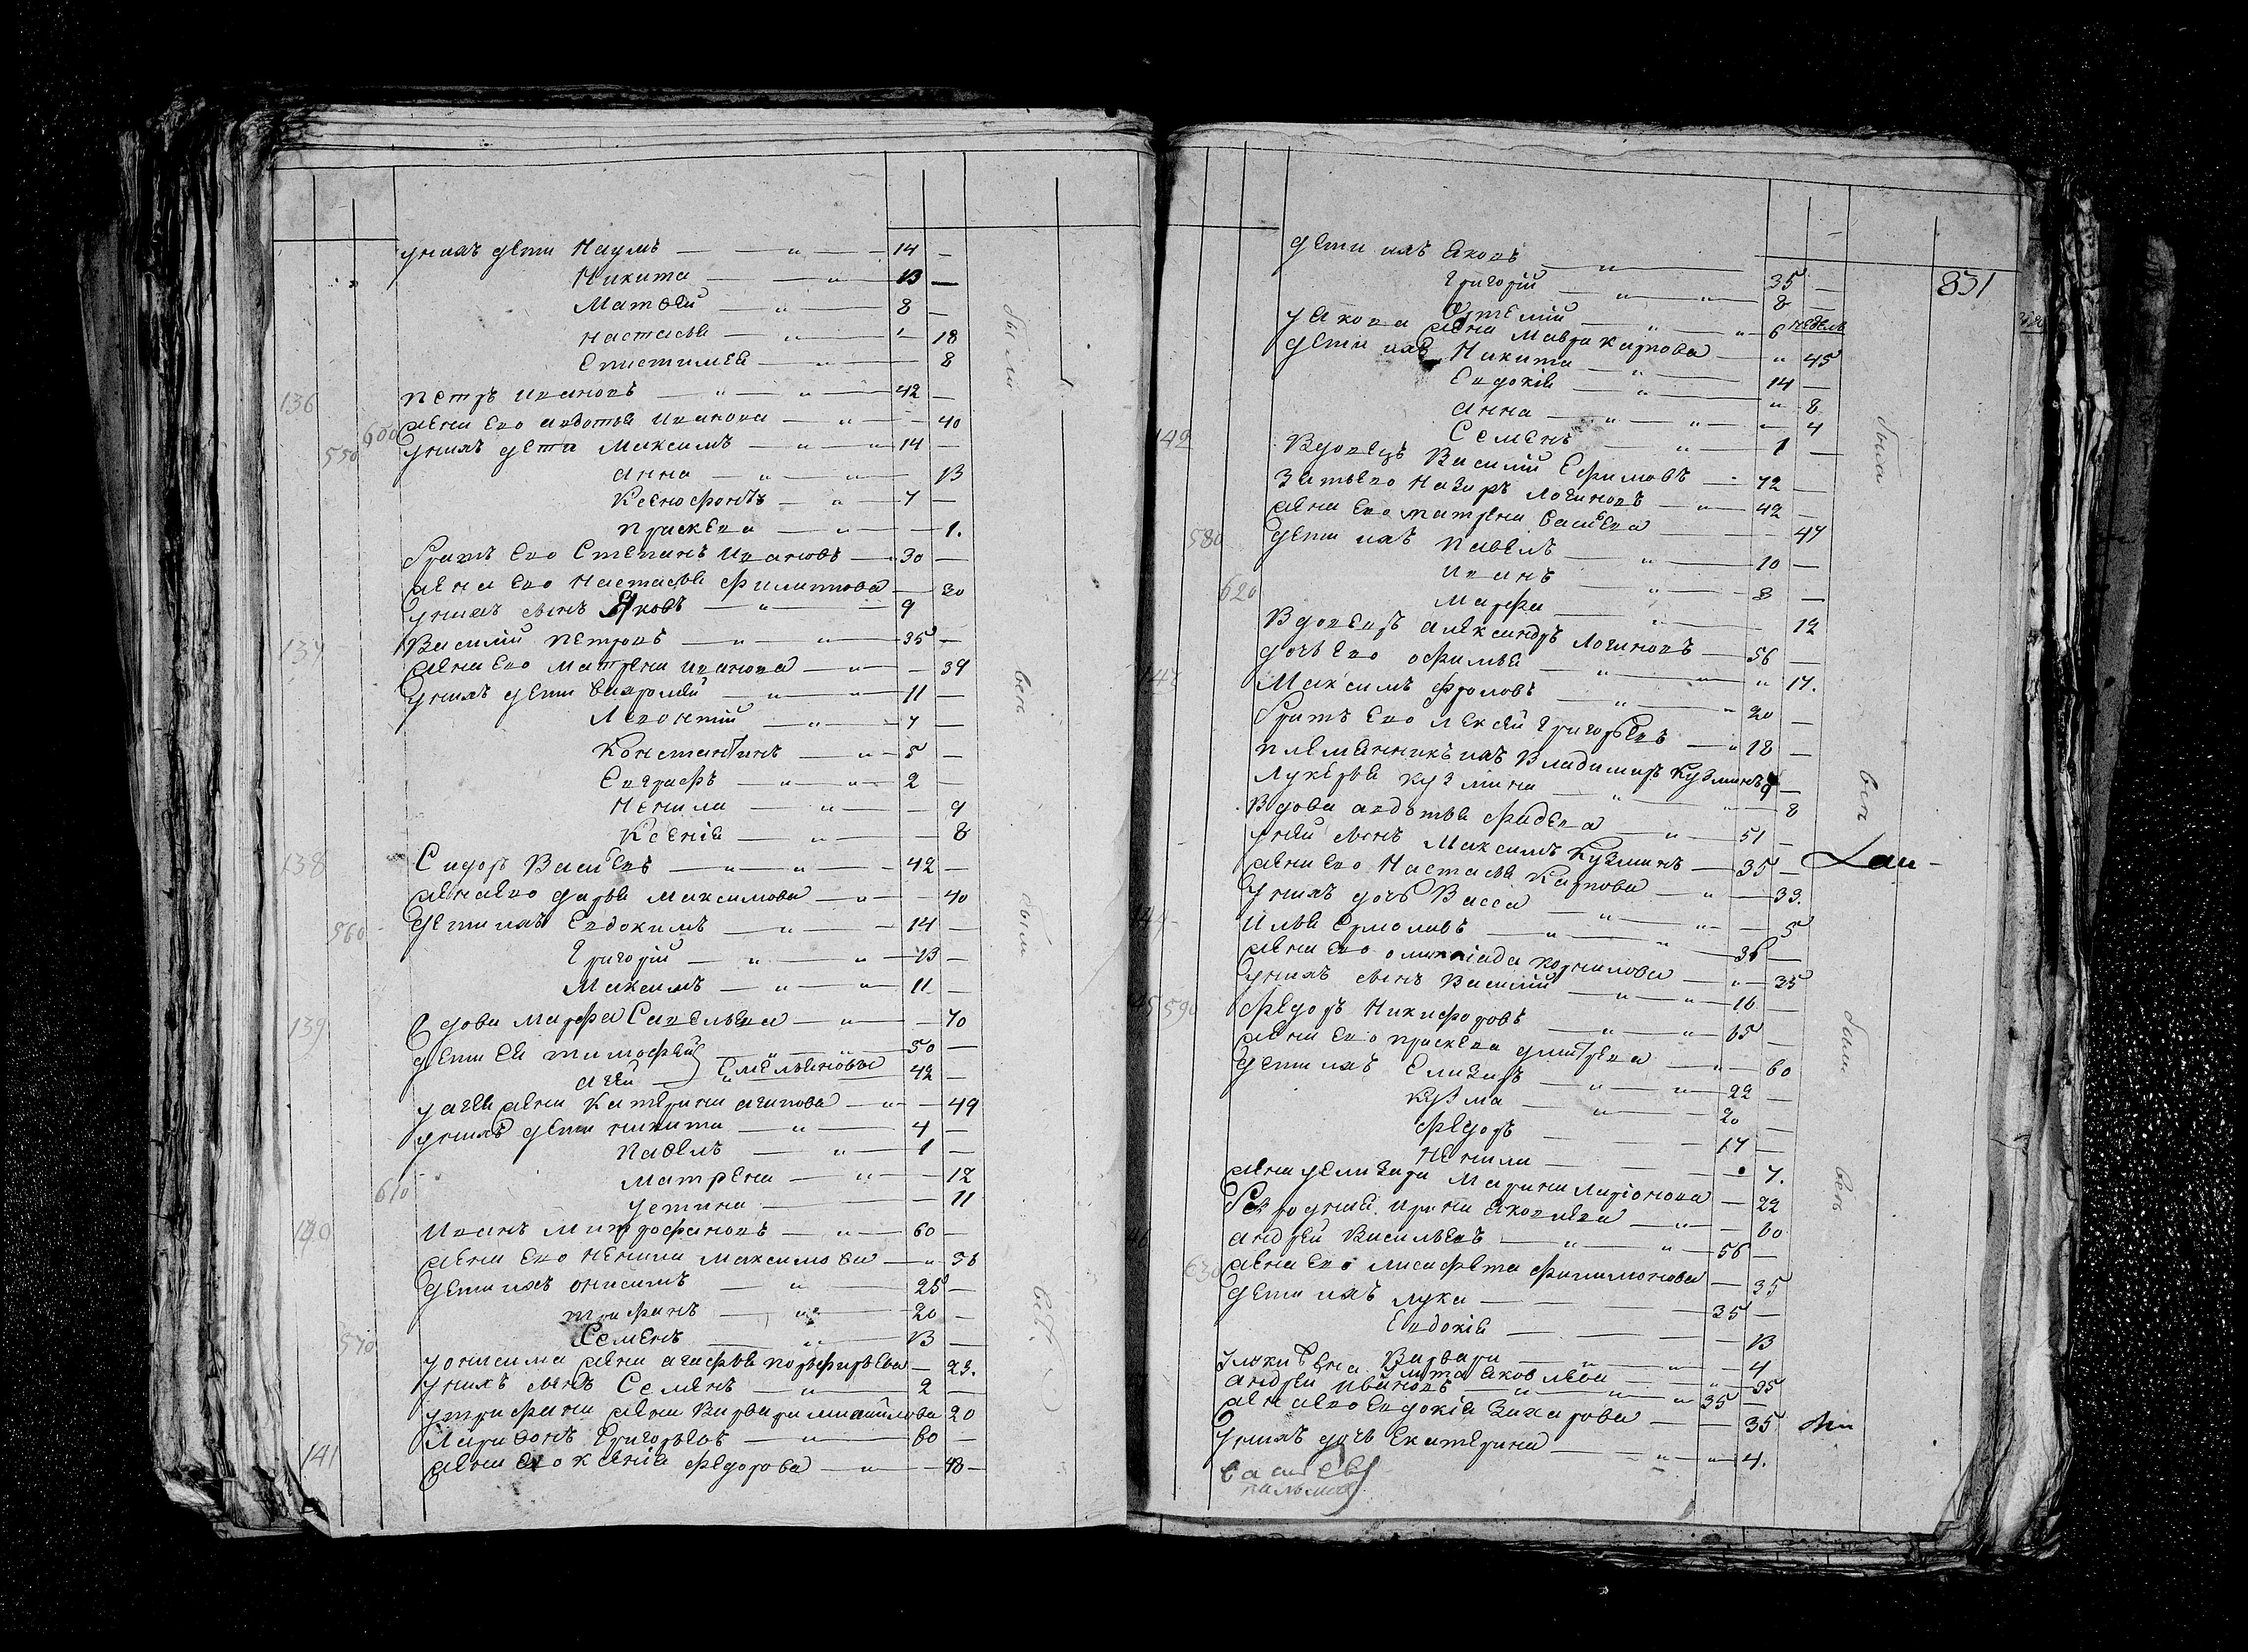 унихъ дети Наумъ — „ — 14 —
Никита — „ — 13 —
Матвей — „ — 8 —
Настасья — „ — 18
Епистимея — „ — 8
136 Петръ Ивановъ — „ — „ — 42 —
600 жена Ево авдотья Иванова — „ — 40
550 унихъ дети Максимъ — „ — „ 14 —
анна — „ — „ — 13
Ксенофонтъ — „ — 7 —
Прасковя — „ — 1.
братъ Ево Степанъ Ивановъ — 30 —
жена Ево Настасья Филиппова — 20
унихъ сынъ Яковъ — „ — 9
137 Василий Петровъ — „ — „ — 35 —
жена Ево Матрена Иванова — „ — 39
унихъ дети Вахромей — „ — „ — 11 —
Левонтий — „ — 7 —
Константинъ — „ — 5 —
Евграфъ — „ — „ — 2 —
Ненила — „ — 9
Ксения — „ — 8
138 Сидоръ Васильевъ — „ — „ — 42 —
жена Ево дарья Максимова — „ — 40
560 дети ихъ Евдокимъ — „ — 14 —
Григорий — „ — „ — 13 —
Максимъ — „ — „ — 11 —
139 вдова Марфа Савельева — „ — 70
дети Ея тимофей — „ — „ 50 —
агей — Емельяновы 42 —
у агея жена Катерина агапова — „ — 49
унихъ дети никита — „ — 4 —
Павелъ — „ — 1 —
610 Матрена — „ — 12
устина — 11
140 Иванъ Митрофановъ — „ — 60 —
жена Ево Ненила Максимова — „ 56
дети ихъ онисимъ — „ — 25 —
трифанъ — „ — 20 —
570 Семенъ — „ — 13 —
уонисима жена агафья порфирьева — 23.
унихъ сынъ Семенъ — „ — 2 —
утрифана жена Варвара михайлова 20
Ларивонъ Григорьевъ — „ — 60 —
141 жена Ево ксения федорова — „ — 48 —
были
все
были
все
831
дети ихъ Яковъ — „ — 35 —
Григорий — „ — „ 8 —
Артемий — „ — „ 6 недель
уЯкова жена Мавра карпова — „ 45
дети ихъ Никита — „ — 14 —
Евдокия — „ — „ 8
анна — „ — „ — 4
Семенъ — „ — 1 —
142 Вдовецъ Василий Ефимовъ — 72 —
Зять Ево Назаръ Логиновъ — „ 42 —
жена Ево матрена Васильева — 47
580 дети ихъ Павелъ — „ — 10 —
Иванъ — „ — 8 —
620 Марфа — „ — 12
Вдовецъ александръ Логиновъ — 56 —
дочь Ево офимья — „ — „ 17.
143 Максимъ Фроловъ — „ — „ 20 —
братъ Ево лексей Григорьевъ — „ 18 —
племянникъ ихъ Владимиръ Кузминъ 9 —
Лукерья кузмина — „ — „ 8
Вдова авдотья фадева — „ — 51 —
уней сынъ Максимъ Кузминъ — 35 —
жена Ево Настасья Карпова — „ — 33.
унихъ дочь Васса — „ — „ — 5
144 Илья Ермолаевъ — „ — „ — 36 —
жена Ево олимпиада корнилова — „ — 35
унихъ сынъ Василий — „ — „ 16 —
145 590 федоръ Никифоровъ — „ — „ 65 —
жена Ево прасковя дмитрева — „ — 60
дети ихъ Елизаръ — „ — „ 22 —
кузма — „ — 20 —
федоръ — 17 —
Ненила — 7.
жена уелизара Марина Ларионова — 22
Ирина Яковлева — „ — 60
146 андрей Васильевъ — „ — „ 56 —
630 жена Ево лисафета филимонова — 35
дети ихъ лука — 35 —
Евдокия — 13
Варвара — „ — „ — 4
улуки жена Яковлева — „ — 35
андрей Ивановъ — „ — „ „ 35 —
жена Ево Евдокия Захарова — 35
унихъ дочь Екатерина — „ — „ 4.
были
все
были
все